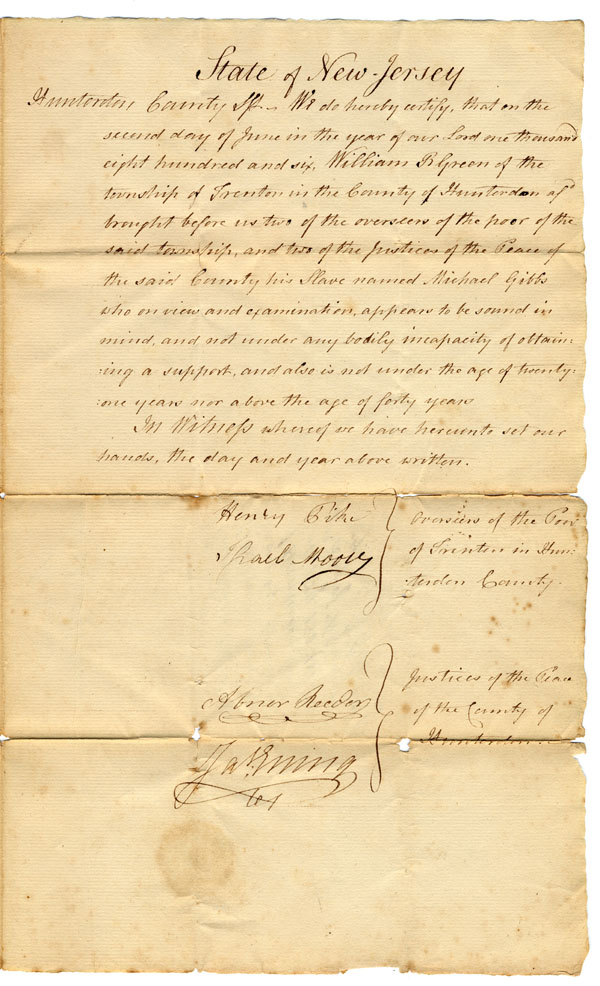 State of New-Jersey
Hunterdon County Ss. We do hereby certify, that on the
second day of June in the year of our Lord one thousand
eight hundred and six, William R Green of the
township of Trenton in the County of Hunterdon afsd
brought before us two of the overseers of the poor of the
said township, and two of the Justices of the Peace of
the said County his Slave named Michael Gibbs
who on view and examination, appears to be sound in
mind, and not under any bodily incapacity of obtain:
:ing a support, and also is not under the age of twenty:
:one years nor above the age of forty years
In Witness whereof we have hereunto set our
hands, the day and year above written.
Henry Pike
Israel Moore
Overseers of the Poor
of Trenton in Hun:
:terdon County.
Abner Reeder
Jas Ewing
Justices of the Peace
of the County of
Hunterdon